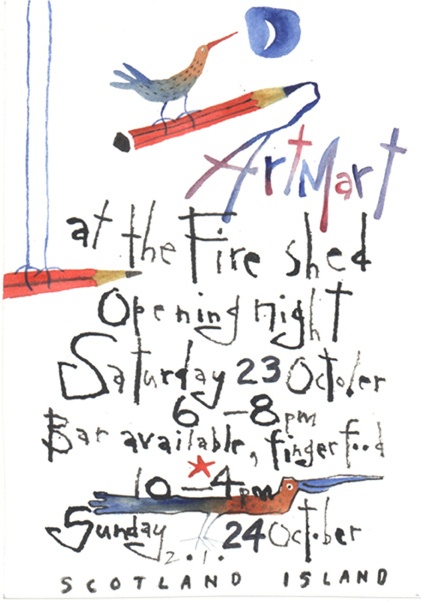 ArtMart
at the Fire shed
Opening night
Saturday 23 October
6 – 8pm
Bar available, fingerfood
10 – 4pm
Sunday 24 October
2.1.
SCOTLAND ISLAND